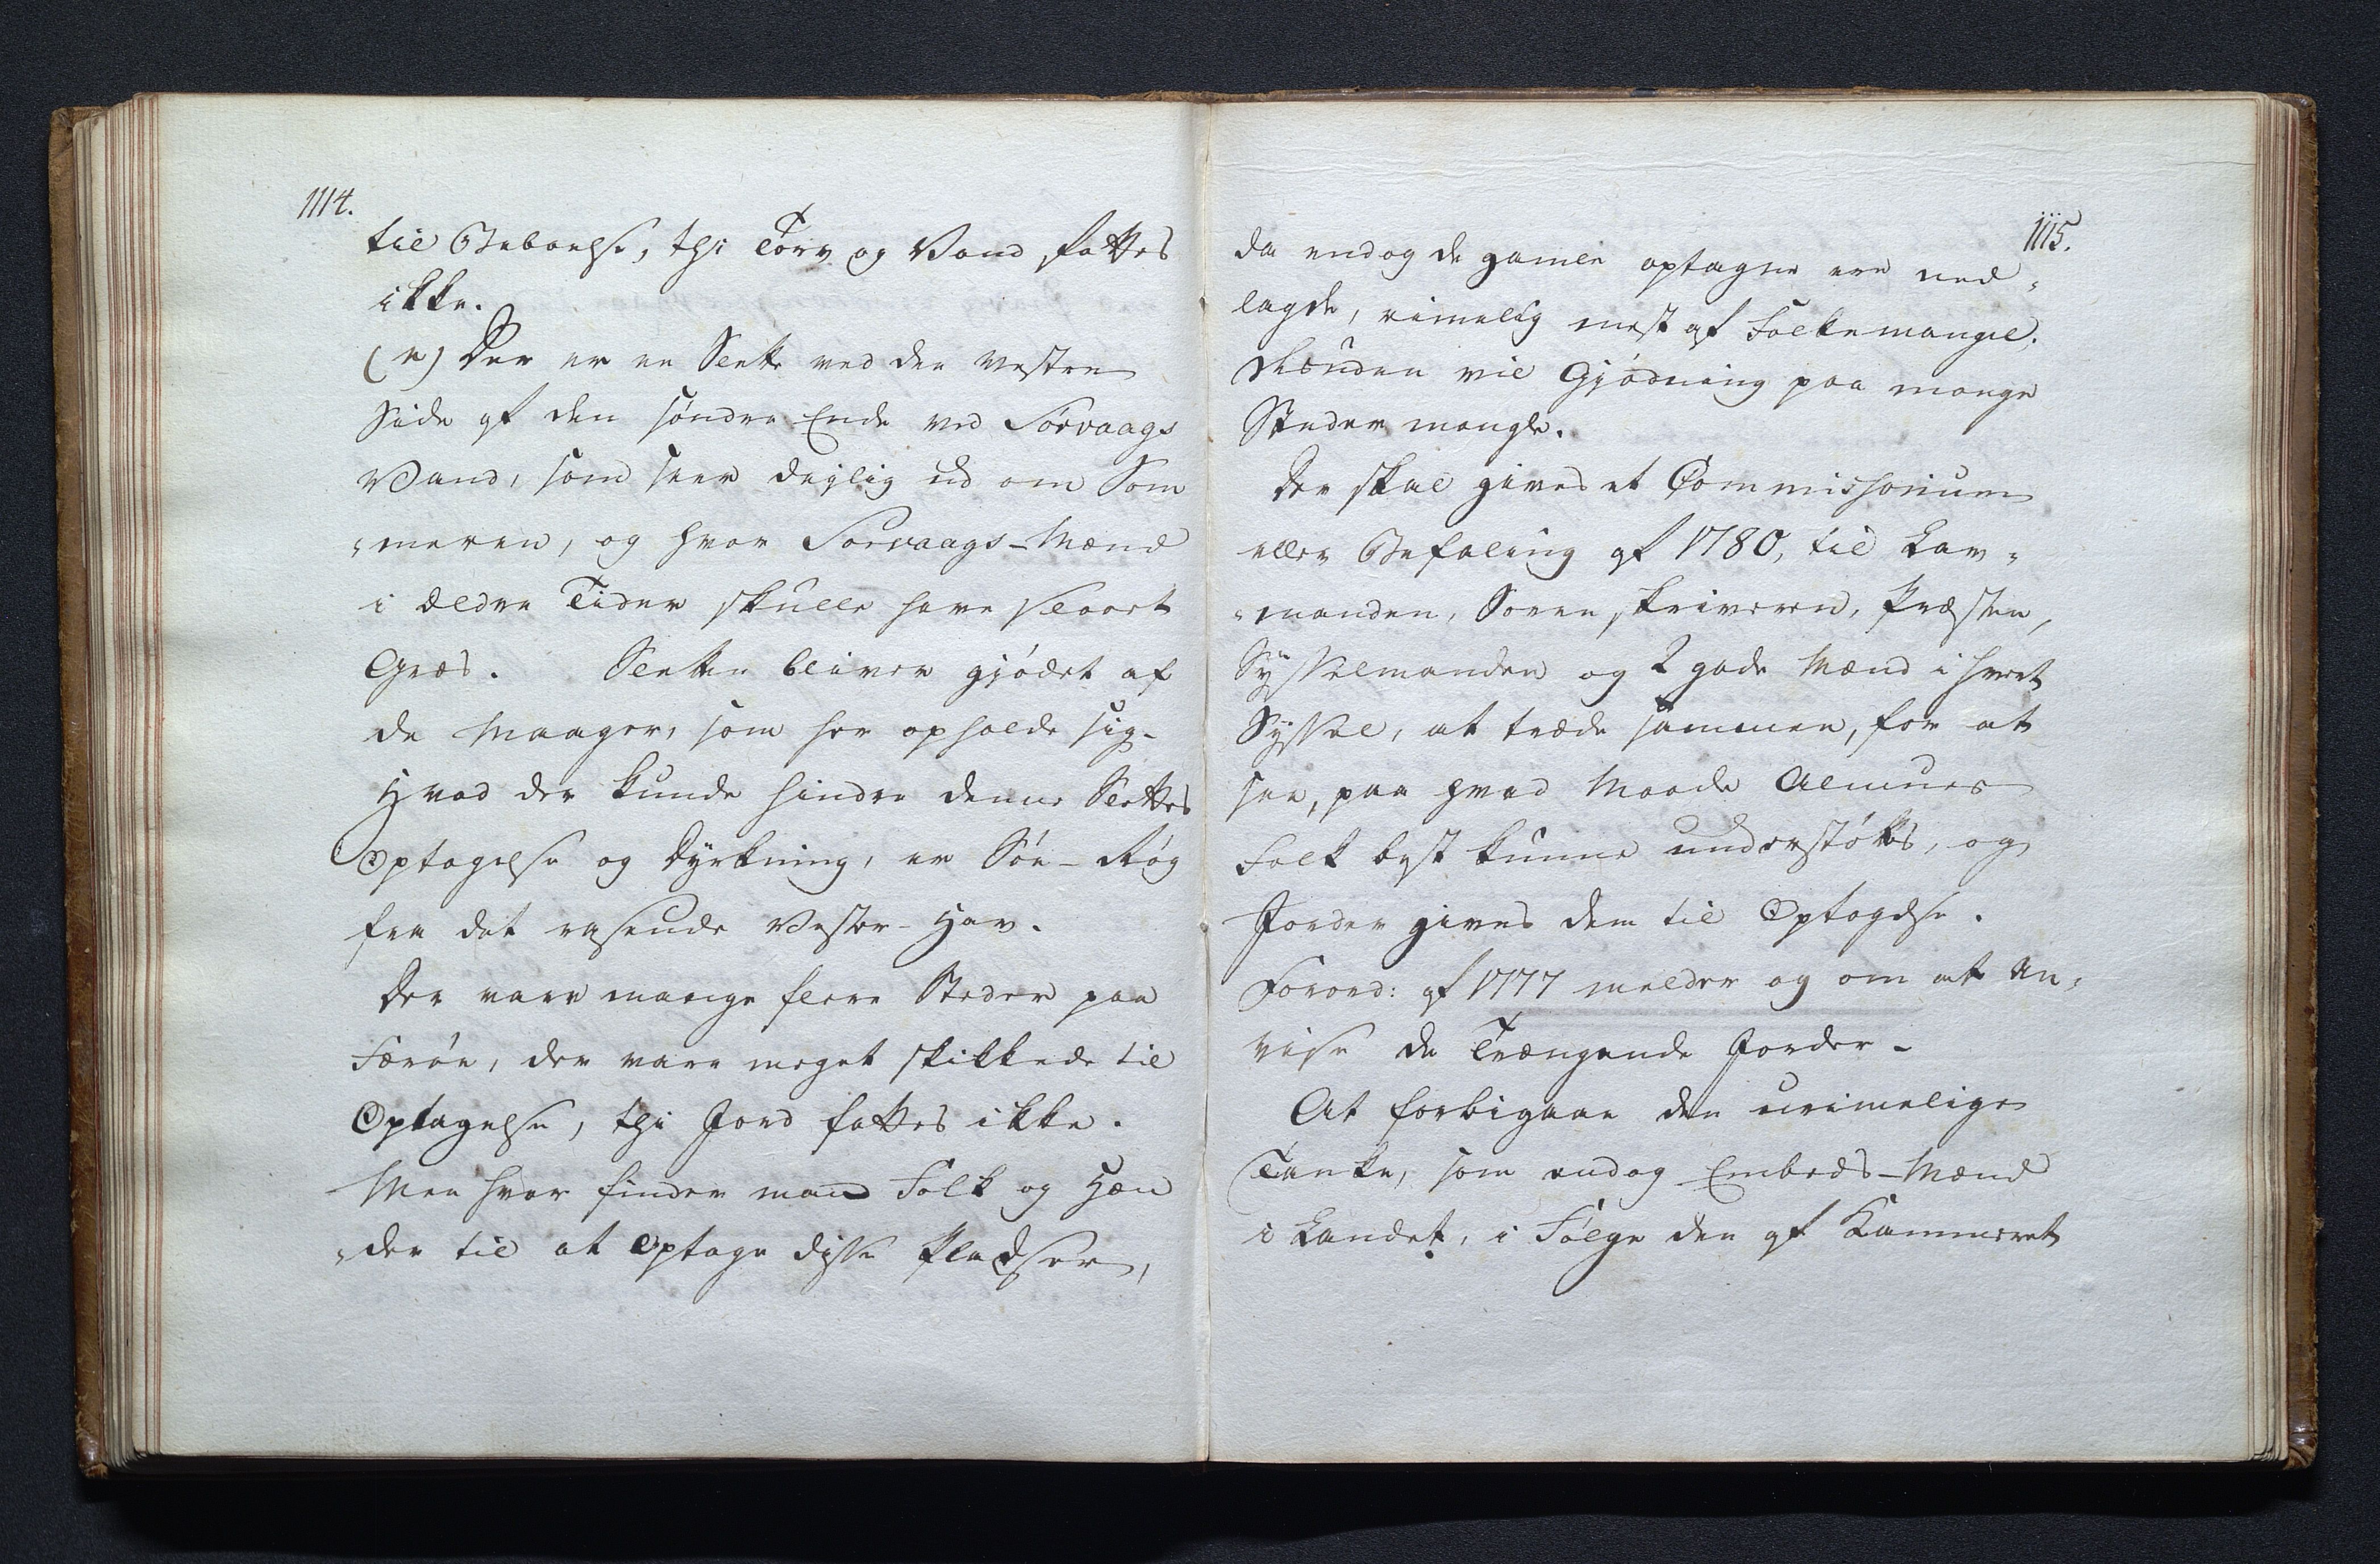 1114.
til Beboelse, thi Törv og Vand fattes
ikke.
(n) Der er en Slette ved den vestre
Side af den söndre Ende ved Sörvaags
Vand, som seer dejlig ud om Som
„meren, og hvor Sorvaags-Mænd
i ældre Tider skulle have slaaet
Græs. Sletten bliver gjödet af
de Maager, som her opholde sig-
Hvad der kunde hindre denne Slettes
Optagelse og Dyrkning, er Söe-Røg
fra det rasende Vester-Hav.
Der vare mange flere Steder paa
Færöe, der vare meget skikkede til
Optagelse, thi Jord fattes ikke.
Men hvor finder mand Folk og Hæn
„der til at optage disse Pladser,
1115.
da endog de gamle optagne ere ned„
lagde, rimelig mest af Folkemangel.
Desuden vil Gjödning paa mange
Steder mangle.
Der skal gives et Commissorium
eller Befaling af 1780, til Lav„
„manden, Sorenskriveren, Præsten,
Sysselmanden og 2 gode Mænd i hvert
Syssel, at træde sammen, for at
see, paa hvad Maade Almues
Folk best kunne understöttes, og
Jorder gives dem til Optagelse.
Forord: af 1777 melder og om at An„
vise de Trængende Jorder-
At forbigaae den urimelige
Tanke, som endog Embeds-Mænd
i Landet, i Fölge den af Kammeret